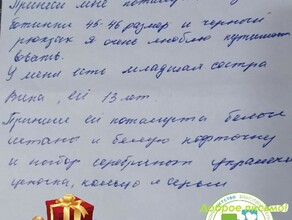 Принеси мне пожалуйста
ботинки 45-46 размер и черный
рюкзак я очень люблю путешест
вовать.
У меня есть младшая сестра
Вика, ей 13 лет
Принеси ей пожалуйста белые
штаны и белую кофточку
и набор серебряных украшени
цепочка, кольцо и серьги
Доброе письмо!